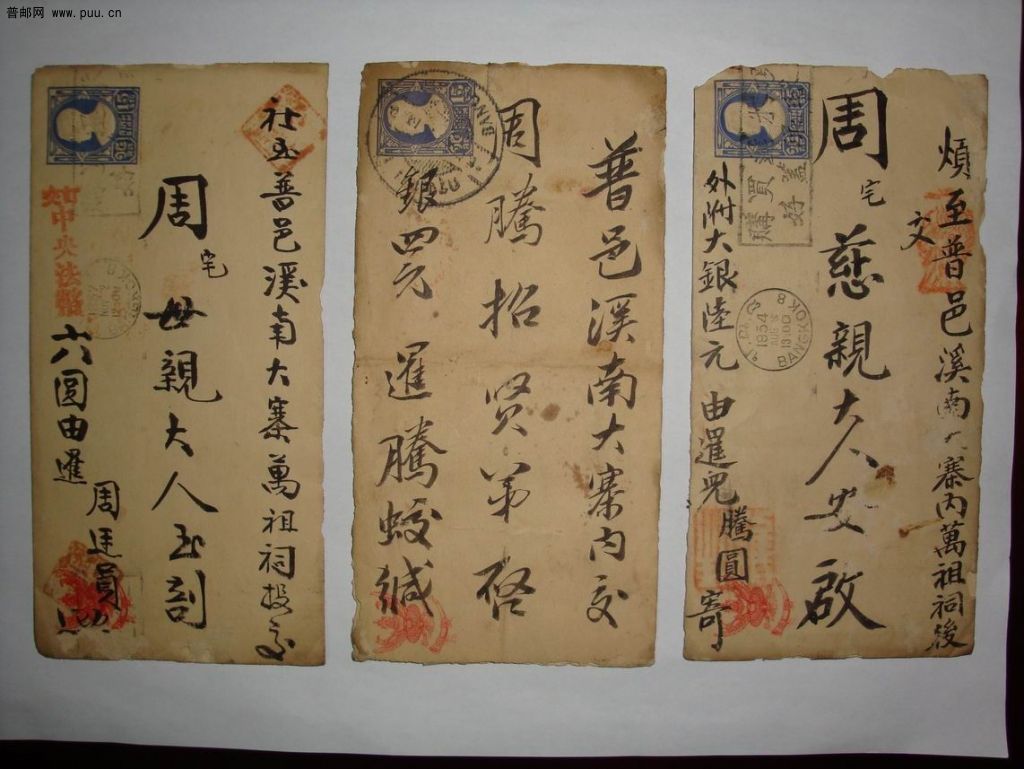 普邮网 www.puu.cn
社玉普邑溪南大寨萬祖祠投交
周宅
母親大人玉剖
中央法幣
六圓由暹
周廷員
15
普邑溪南大寨内交
周騰招贤弟啓
銀四元 暹騰蛟緘
15
BANG
煩至普邑溪南大寨内萬祖祠後
交
周宅慈親大人安啟
外附大銀陸元 由暹兇騰圓寄
購買
15
1934
13.00
BANGKOK 8